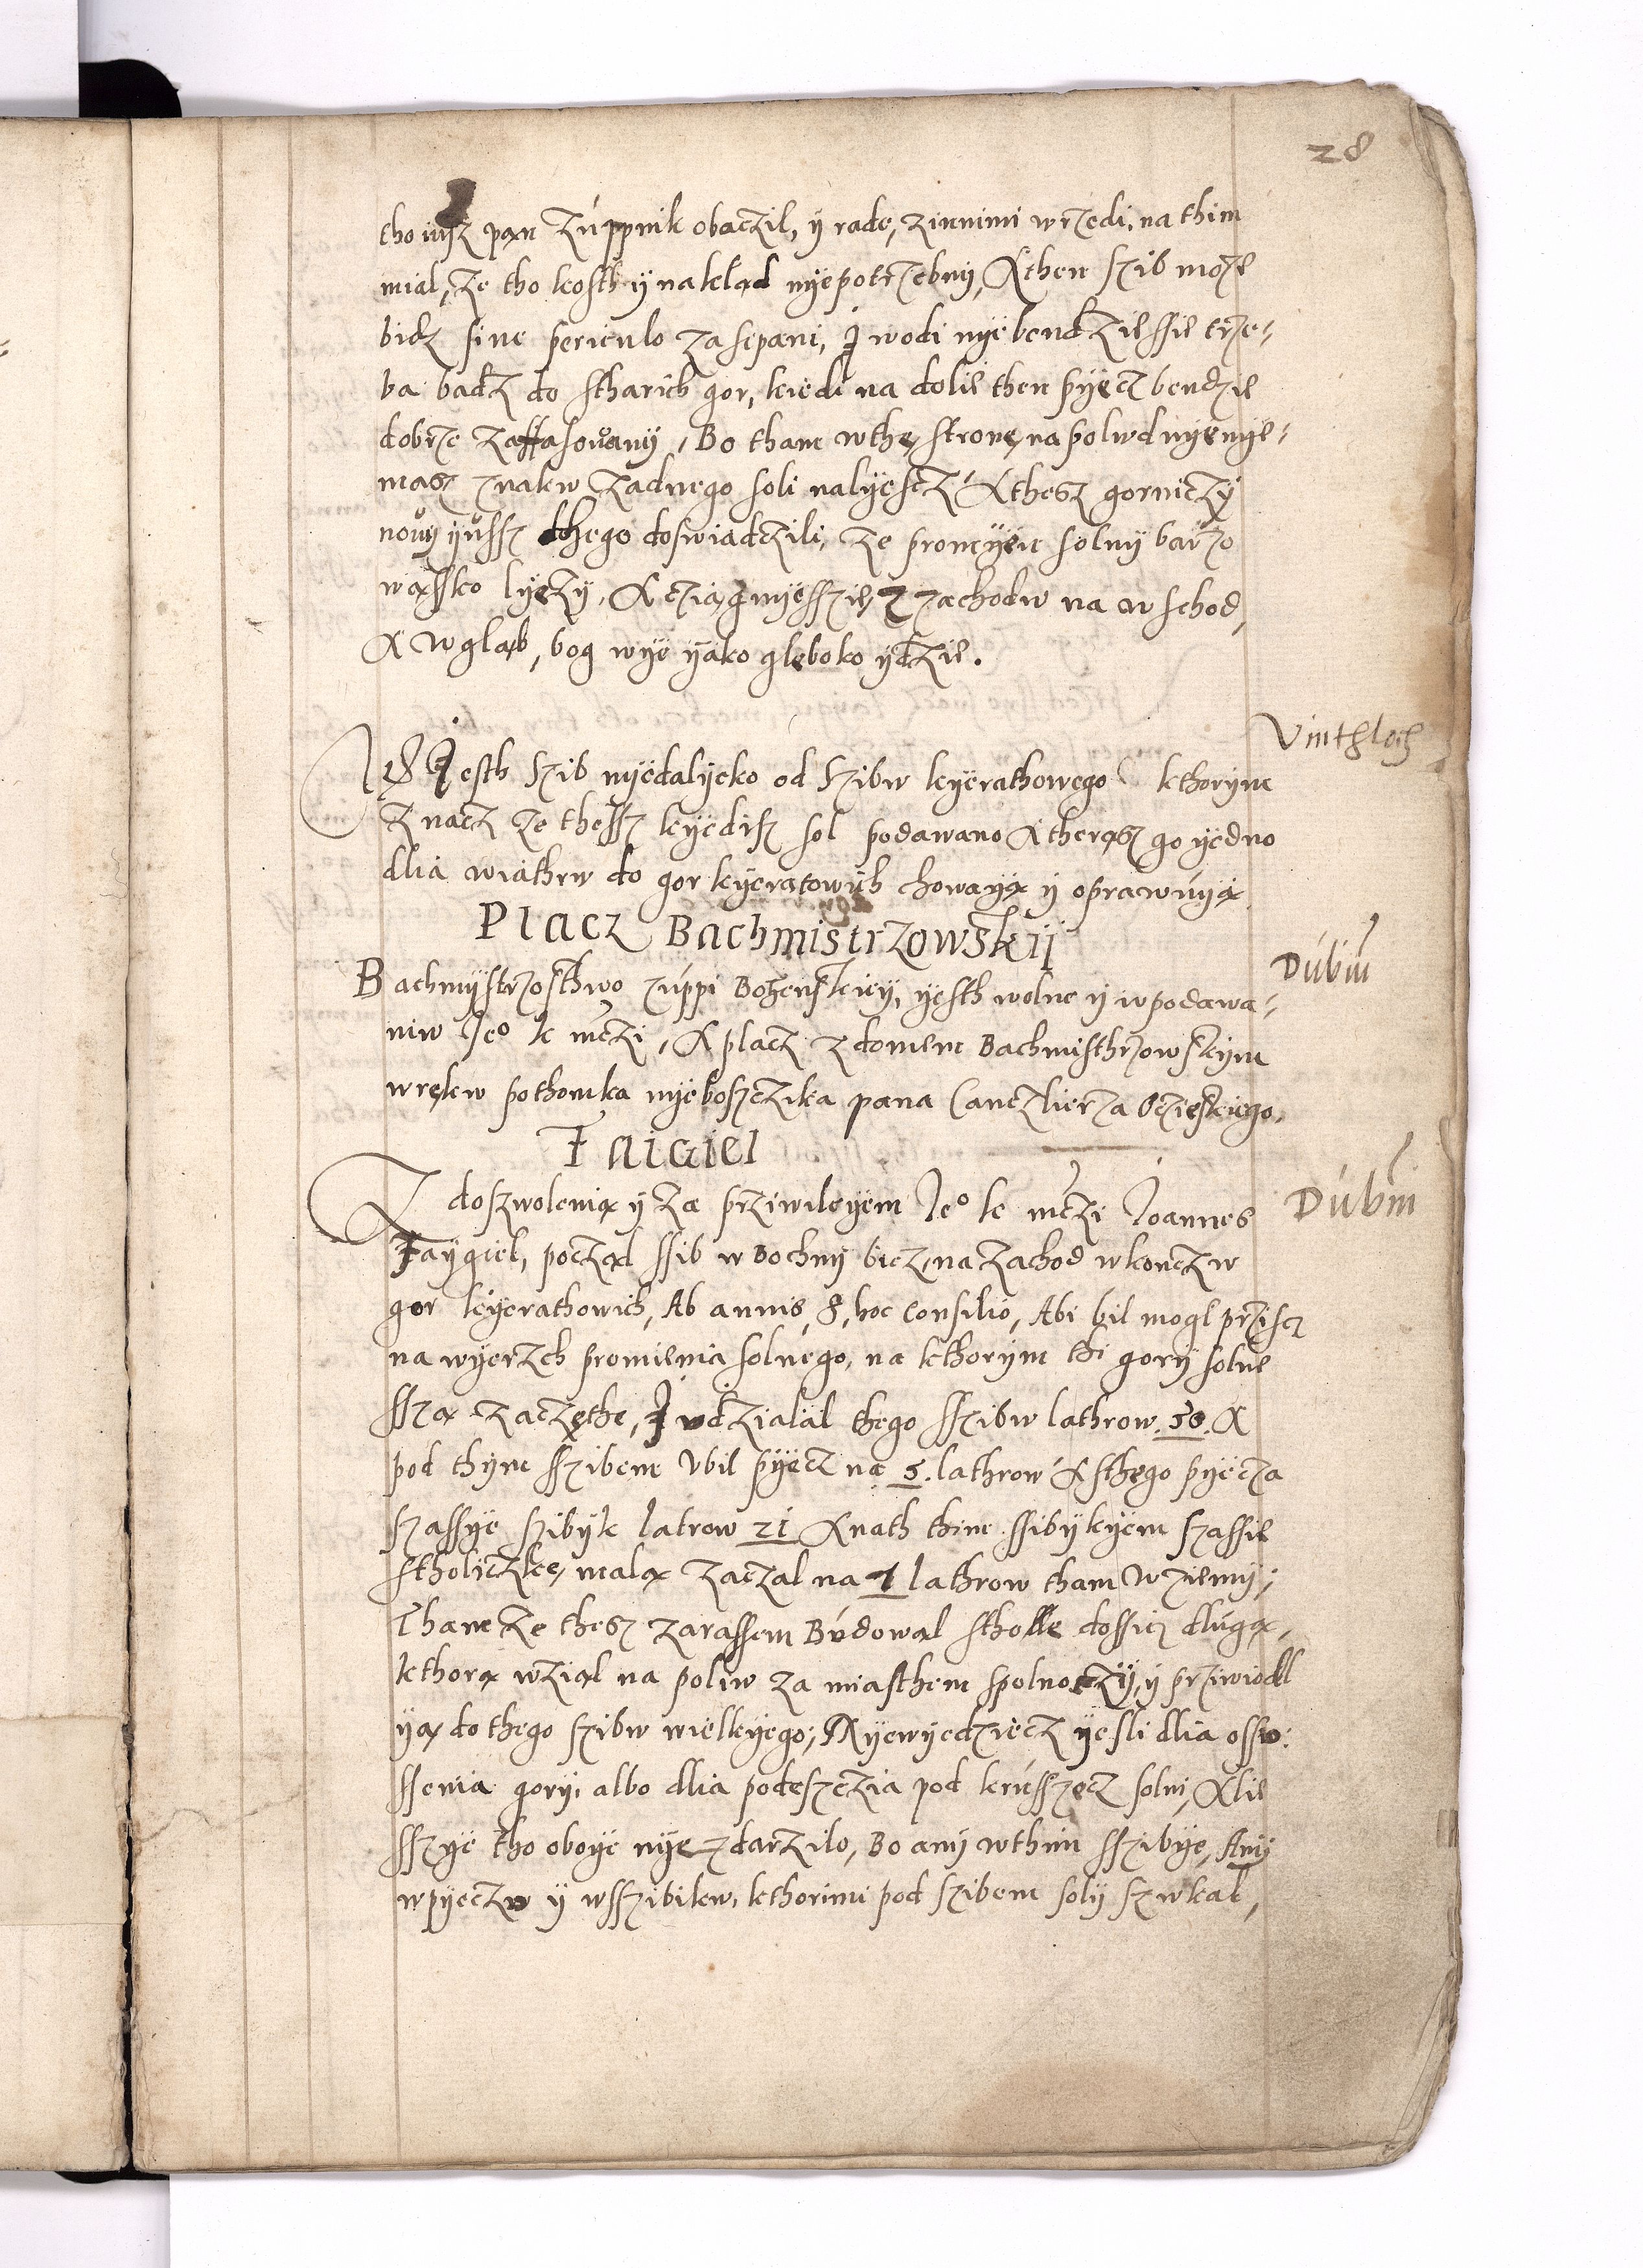 28
tho iusz pan Zúppnik obaczil, ÿ rade, zinnimi wrzedi, na thim
mial, Ze tho kosth ÿ naklad nÿepotrzebnÿ, A then szib moze
bidz sine periculo zasipani, J wodi nÿe bendzie ssie trze-
ba badz do stharich gor, kiedi na dolie then pÿecz bendzie
dobrze zaffasowanÿ, Bo tham wthe strone, na polwdnÿe nÿe-
masz znakw Zadnego soli nalÿescz A thesz gorniczÿ
nowÿ ÿussz thego doswiadczili, Ze promÿen solnÿ barzo
wąssko lÿezÿ, A cziągnÿe sszie z zachodw na w schod,
A w gląb, bog wÿe ÿako gleboko ÿdzie.
Vinthloch
Jesth szib nÿedalÿeko od szibw keÿerathowego kthorÿm
Znacz Ze thessz kÿedisz sol podawano A therasz go ÿedno
dlia wiathrw do gor keÿeratowÿch chowaÿą ÿ oprawúÿą
Placz Bachmistrzowskij
Dúbiū
Bachmÿstrzosthwo zúppi Bozenskieÿ, ÿesth wolne ÿ w podawa-
niw Jeo k mczi, A placz z domem Bachmisthrzowskÿm
wrękw pothomka nÿeboszczika pana Canczlierza Oczieskiego.
Faigiel
Dúbm
Z doszwolenią ÿ za prziwileÿem Jeo k mczi Joannes
Faÿgiel, począl ssib w Bochnÿ bicz, na zachod wkonczw
gor keÿerathowich, Ab annis, 8, hoc consilio, Abi bil mogl prziscz
na wÿerzch promienia solnego, na kthorÿm thi gorÿ solne
sszą zaczęthe, J vdzialal thego sszibw lathrow. 50. A
pod thÿm sszibem vbil pÿecz na 5. lathrow A sthego pÿecza
szassÿe szibÿk latrow 21 A nath thim ssibÿkÿem szassie
stholiczke, malą zaczal na 1 lathrow tham w ziemÿ;
Thamze thesz zarassem Búdowal stholle dossicz dlúgą,
kthorą wziąl na poliw za miasthem spolnoczÿ, ÿ prziwiodl
ÿą do thego szibw wielkÿego; Nÿewÿedziecz ÿesli dlia ossw-
ssenia gorÿ, albo dlia podeszczia pod krússzecz solni, A lie
sszÿe tho oboÿe nÿe zdarzilo, Bo anÿ wthim sszibÿe, Anÿ
wpÿeczw ÿ wsszibikw, kthorimi pod szibem solÿ szwkal,